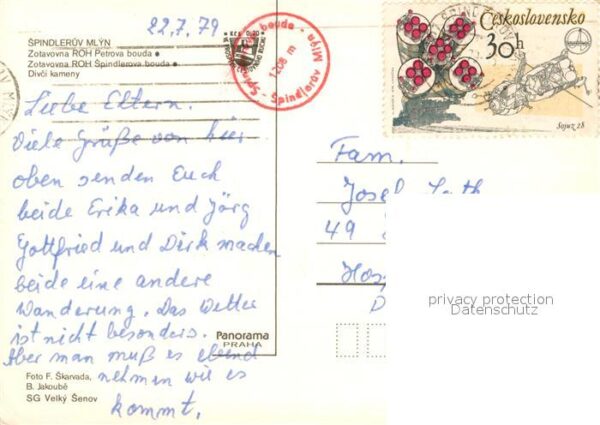 22.7.79
ŠPINDLERŮV MLÝN
Zotavovna ROH Petrova bouda
Zotavovna ROH Špindlerova bouda
Dívčí kameny
Liebe Eltern.
Viele Grüße von hier
oben senden Euch
beide Erika und Jörg
Gottfried und Dirk machen
beide eine andere
Wanderung. Das Wetter
ist nicht besonders.
Aber man muß es ebend
nehmen wie es
kommt.
Foto F. Škarvada,
B. Jakoubě
SG Velký Šenov
Panorama
PRAHA
bouda
1208 m
Špindlerův Mlýn
Československo
30h
Sojuz 28
Fam.
Josef
49
privacy protection
Datenschutz